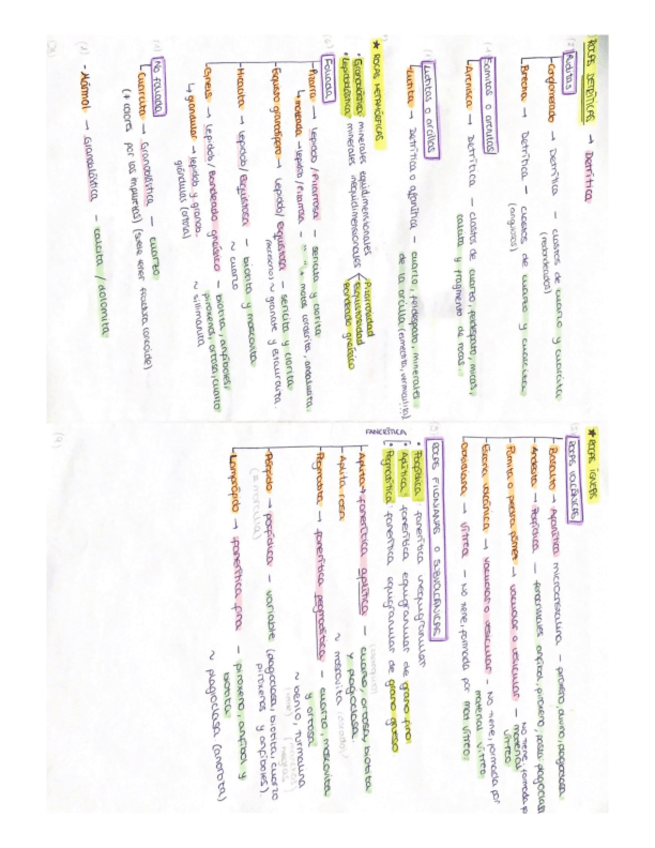 ROCAS DETRÍTICAS → Detrítica
Ruditas
- Conglomerado → Detrítica - clastos de cuarzo y cuarcita
(redondeados)
- Brecha → Detrítica - clastos de cuarzo y cuarcita
(angulosos)
Samitas o arenitas
- Arenisca → Detrítica - clastos de cuarzo, feldespato, micas,
calcita y fragmento de rocas.
Lutitas o arcillas
- Lutita → Detrítica o afanítica - cuarzo, feldespato, minerales
de la arcilla (esmectita, vermiculita)
★ ROCAS METAMÓRFICAS
• Granoblástica minerales equidimensionales
• Lepidoblástica minerales inequidimensionales
Pizarrosidad
Esquistosidad
Bandeado gneísico
Foliada
- Pizarra → Lepidob/Pizarrosa - sericita y clorita
↳ moteada → lepidob/Pizarrosa - " " ~ motas cordierita, andalucita.
- Esquisto granatífero → Lepidob/Esquistosa - sericita y clorita
~ granate y estaurolita.
- Micacita → lepidob/Esquistosa - biotita y moscovita
~ cuarzo
- Gneis → Lepidob/Bandeado gneísico - biotita, anfíboles,
piroxenos, ortosa, cuarzo
↳ glandular → lepidob y granob. ~ sillimanita
glándulas (ortosa)
No foliada
- Cuarcita → Granoblástica - cuarzo
(≠ colores por las impurezas) (suele tener fractura concoide)
- Mármol → Granoblástica - calcita / dolomita
★ ROCAS ÍGNEAS
ROCAS VOLCÁNICAS
- Basalto → Afanítica microcristalina - piroxeno, olivino, plagioclasa
- Andesita → Porfídica - fenocristales anfíbol, piroxeno, plagioclasa
- Pumita o piedra pómez → vacuolar o vesicular - No tiene, formada por
material vítreo
- Escoria volcánica → vacuolar o vesicular - No tiene, formada por
material vítreo.
- Obsidiana → vítrea - No tiene, formada por mat vítreo.
ROCAS FILONIANAS O SUBVOLCÁNICAS
FANERÍTICA
• Porfídica fanerítica inequigranular
• Aplítica fanerítica equigranular de grano fino
• Pegmatítica fanerítica equigranular de grano grueso
- Aplita → fanerítica aplítica - cuarzo, ortosa, biotita
y plagioclasa.
- Aplita rosa ~ moscovita
- Pegmatita → fanerítica pegmatítica - cuarzo, moscovita
y ortosa
~ berilo, turmalina
- Pórfido → porfídica - variable (plagioclasa, biotita, cuarzo
piroxenos y anfíboles).
- Lamprófido → fanerítica fina - piroxeno, anfíbol y
biotita
~ plagioclasa (anortita)